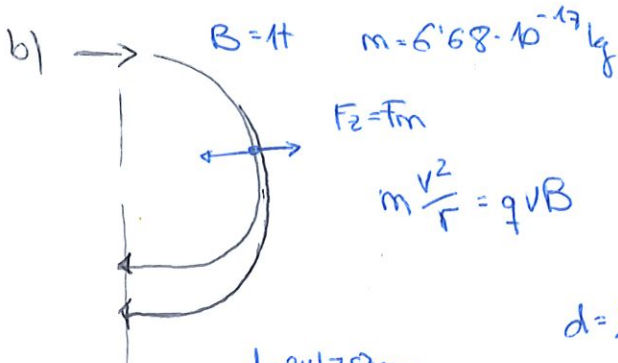 b) B = 1t m = 6'68·10⁻¹⁷ kg
Fz = Fm
m v²/r = qvB
d =